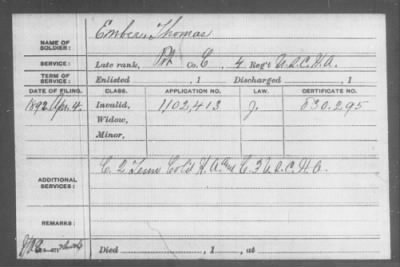 NAME OF SOLDIER: Embers, Thomas
SERVICE: Late rank, Pvt Co. C, 4 Reg't U.S.C.H.A.
TERM OF SERVICE: Enlisted , 1 Discharged , 1
DATE OF FILING. CLASS. APPLICATION NO. LAW. CERTIFICATE NO.
1892 Apr. 4. Invalid, 1,102,413 J. 830.295
Widow,
Minor,
ADDITIONAL SERVICES: C. 2 Tenn Col'd H.A. and C. 3 U.S.C.H.A.
REMARKS:
Died , 1 , at